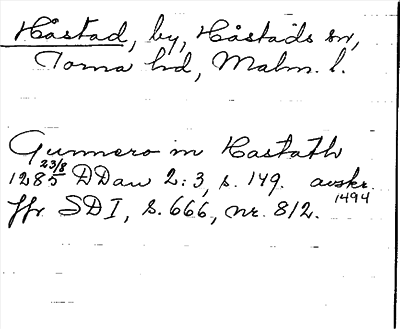 Håstad, by, Håstads sn,
Torna hd, Malm. l.
Gunnero in Hastath
1285 23/8 DDan 2:3, s. 149. avskr. 1494
ffr SD I, s. 666, nr. 812.